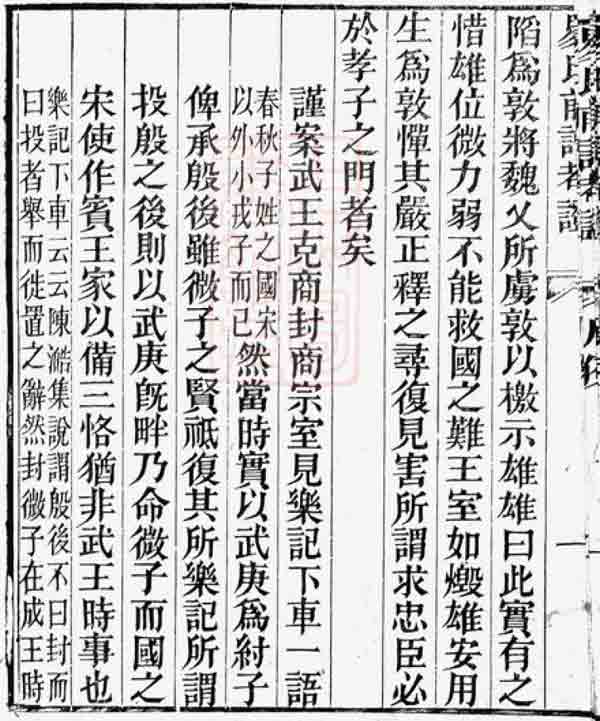 陷爲敦將魏乂所虜敦以檄示雄雄曰此實有之
惜雄位微力弱不能救國之難王室如燬雄安用
生爲敦憚其嚴正釋之尋復見害所謂求忠臣必
於孝子之門者矣
謹案武王克商封商宗室見樂記下車一語
春秋子姓之國宋
以外小戎子而已
然當時實以武庚爲紂子
俾承殷後雖微子之賢祗復其所樂記所謂
投殷之後則以武庚旣畔乃命微子而國之
宋使作賓王家以備三恪猶非武王時事也
樂記下車云云陳澔集說謂殷後不曰封而
曰投者舉而徙置之辭然封微子在成王時